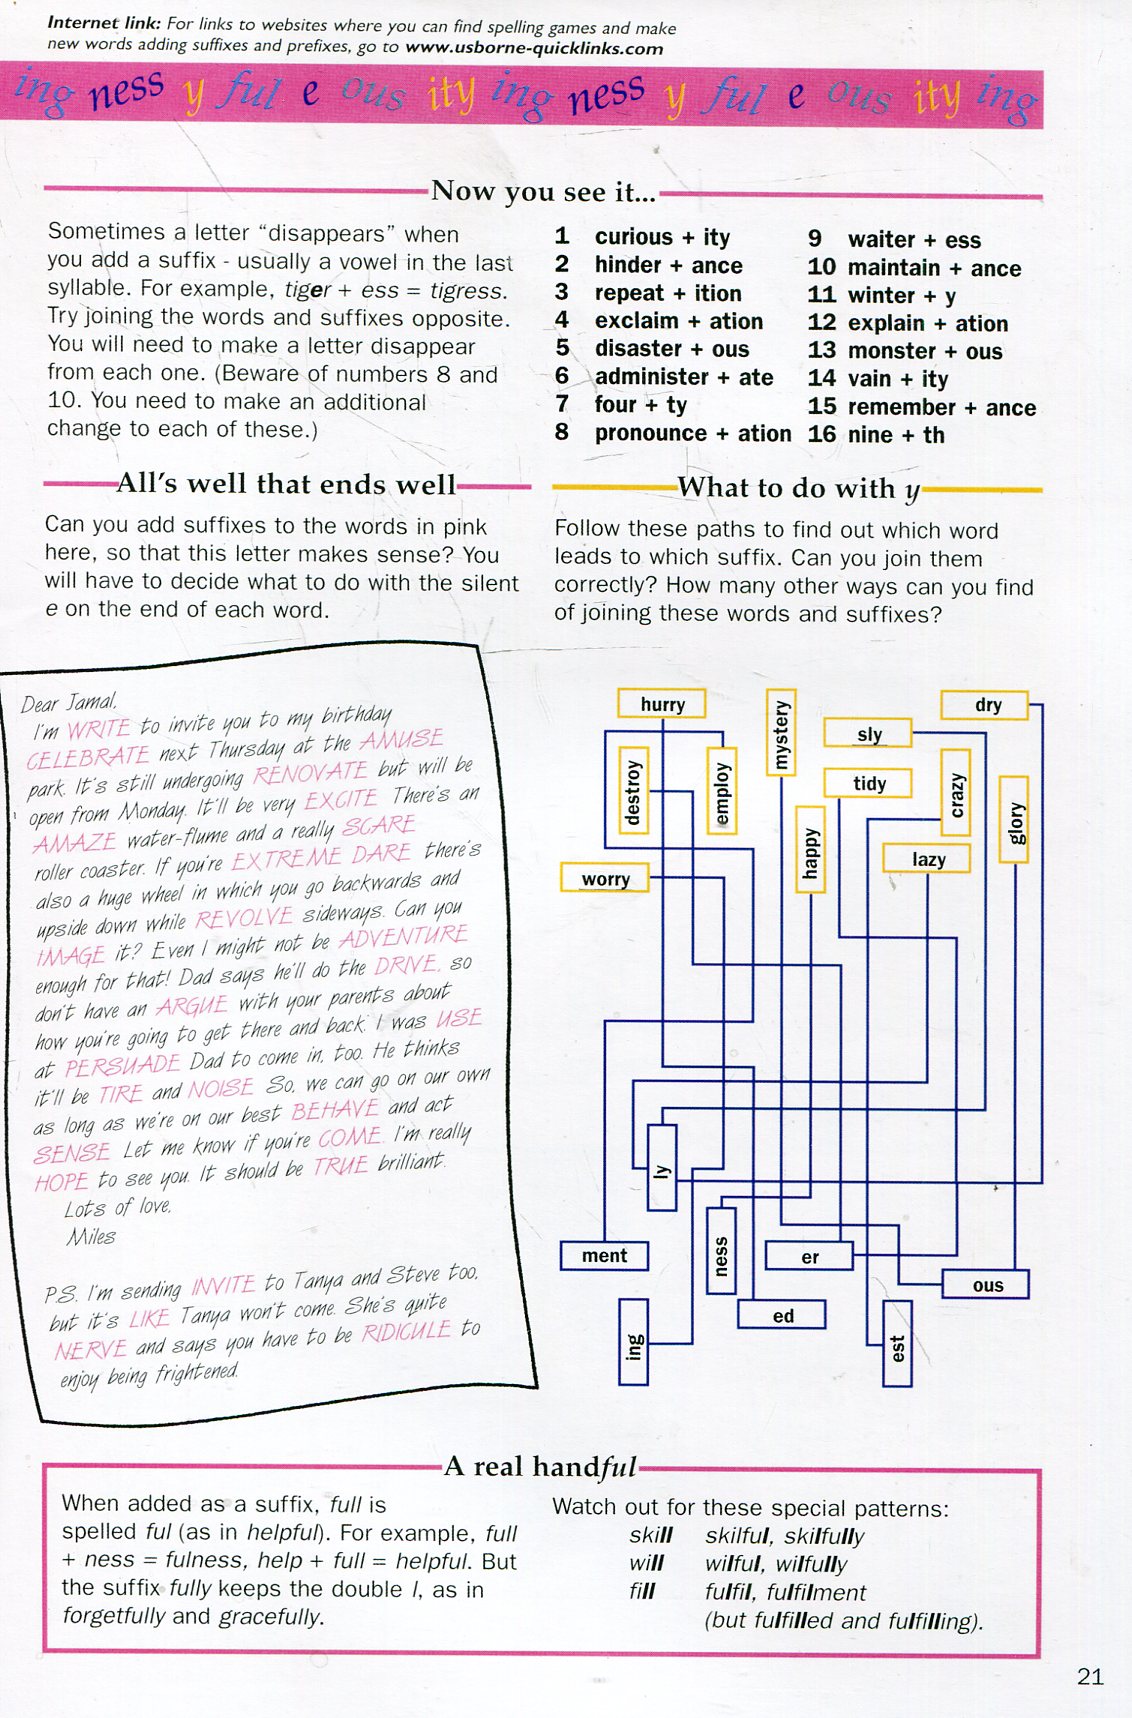 Internet link: For links to websites where you can find spelling games and make
new words adding suffixes and prefixes, go to www.usborne-quicklinks.com
ing ness y ful e ous ity ing ness y ful e ous ity ing
Now you see it...
Sometimes a letter “disappears” when
you add a suffix - usually a vowel in the last
syllable. For example, tiger + ess = tigress.
Try joining the words and suffixes opposite.
You will need to make a letter disappear
from each one. (Beware of numbers 8 and
10. You need to make an additional
change to each of these.)
1 curious + ity
2 hinder + ance
3 repeat + ition
4 exclaim + ation
5 disaster + ous
6 administer + ate
7 four + ty
8 pronounce + ation
9 waiter + ess
10 maintain + ance
11 winter + y
12 explain + ation
13 monster + ous
14 vain + ity
15 remember + ance
16 nine + th
All's well that ends well
Can you add suffixes to the words in pink
here, so that this letter makes sense? You
will have to decide what to do with the silent
e on the end of each word.
Dear Jamal,
I'm WRITE to invite you to my birthday
CELEBRATE next Thursday at the AMUSE
park. It's still undergoing RENOVATE but will be
open from Monday. It'll be very EXCITE There's an
AMAZE water-flume and a really SCARE
roller coaster. If you're EXTREME DARE there's
also a huge wheel in which you go backwards and
upside down while REVOLVE sideways. Can you
IMAGE it? Even I might not be ADVENTURE
enough for that! Dad says he'll do the DRIVE, so
don't have an ARGUE with your parents about
how you're going to get there and back. I was USE
at PERSUADE Dad to come in, too. He thinks
it'll be TIRE and NOISE So, we can go on our own
as long as we're on our best BEHAVE and act
SENSE Let me know if you're COME. I'm really
HOPE to see you. It should be TRUE brilliant.
Lots of love,
Miles
P.S. I'm sending INVITE to Tanya and Steve too,
but it's LIKE Tanya won't come. She's quite
NERVE and says you have to be RIDICULE to
enjoy being frightened.
What to do with y
Follow these paths to find out which word
leads to which suffix. Can you join them
correctly? How many other ways can you find
of joining these words and suffixes?
hurry
mystery
dry
sly
destroy
employ
tidy
crazy
glory
happy
lazy
worry
ly
ment
ness
er
ous
ed
ing
est
A real handful
When added as a suffix, full is
spelled ful (as in helpful). For example, full
+ ness = fulness, help + full = helpful. But
the suffix fully keeps the double l, as in
forgetfully and gracefully.
Watch out for these special patterns:
skill skilful, skilfully
will wilful, wilfully
fill fulfil, fulfilment
(but fulfilled and fulfilling).
21